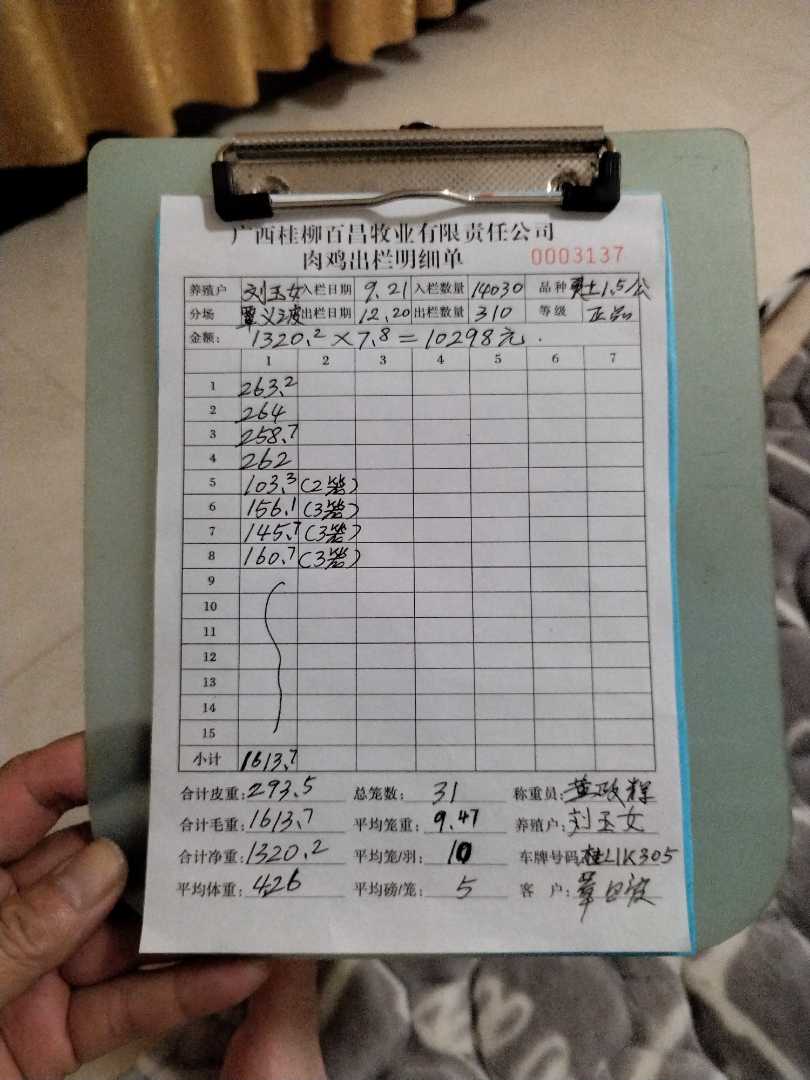 广西桂柳百昌牧业有限责任公司
肉鸡出栏明细单 0003137
养殖户 刘玉女 入栏日期 9.21 入栏数量 14030 品种 土1.5/公
分场 出栏日期 12.20 出栏数量 310 等级 正品
金额: 1320.2×7.8=10298元.
1 2 3 4 5 6 7
1 263.2
2 264
3 258.7
4 262
5 103.3 (2笼)
6 156.1 (3笼)
7 145.7 (3笼)
8 160.7 (3笼)
9
10
11
12
13
14
15
小计 1613.7
合计皮重: 293.5 总笼数: 31 称重员: 黄政辉
合计毛重: 1613.7 平均笼重: 9.47 养殖户: 刘玉女
合计净重: 1320.2 平均笼/羽: 10 车牌号码: 桂L1K305
平均体重: 4.26 平均磅/笼: 5 客户: 覃